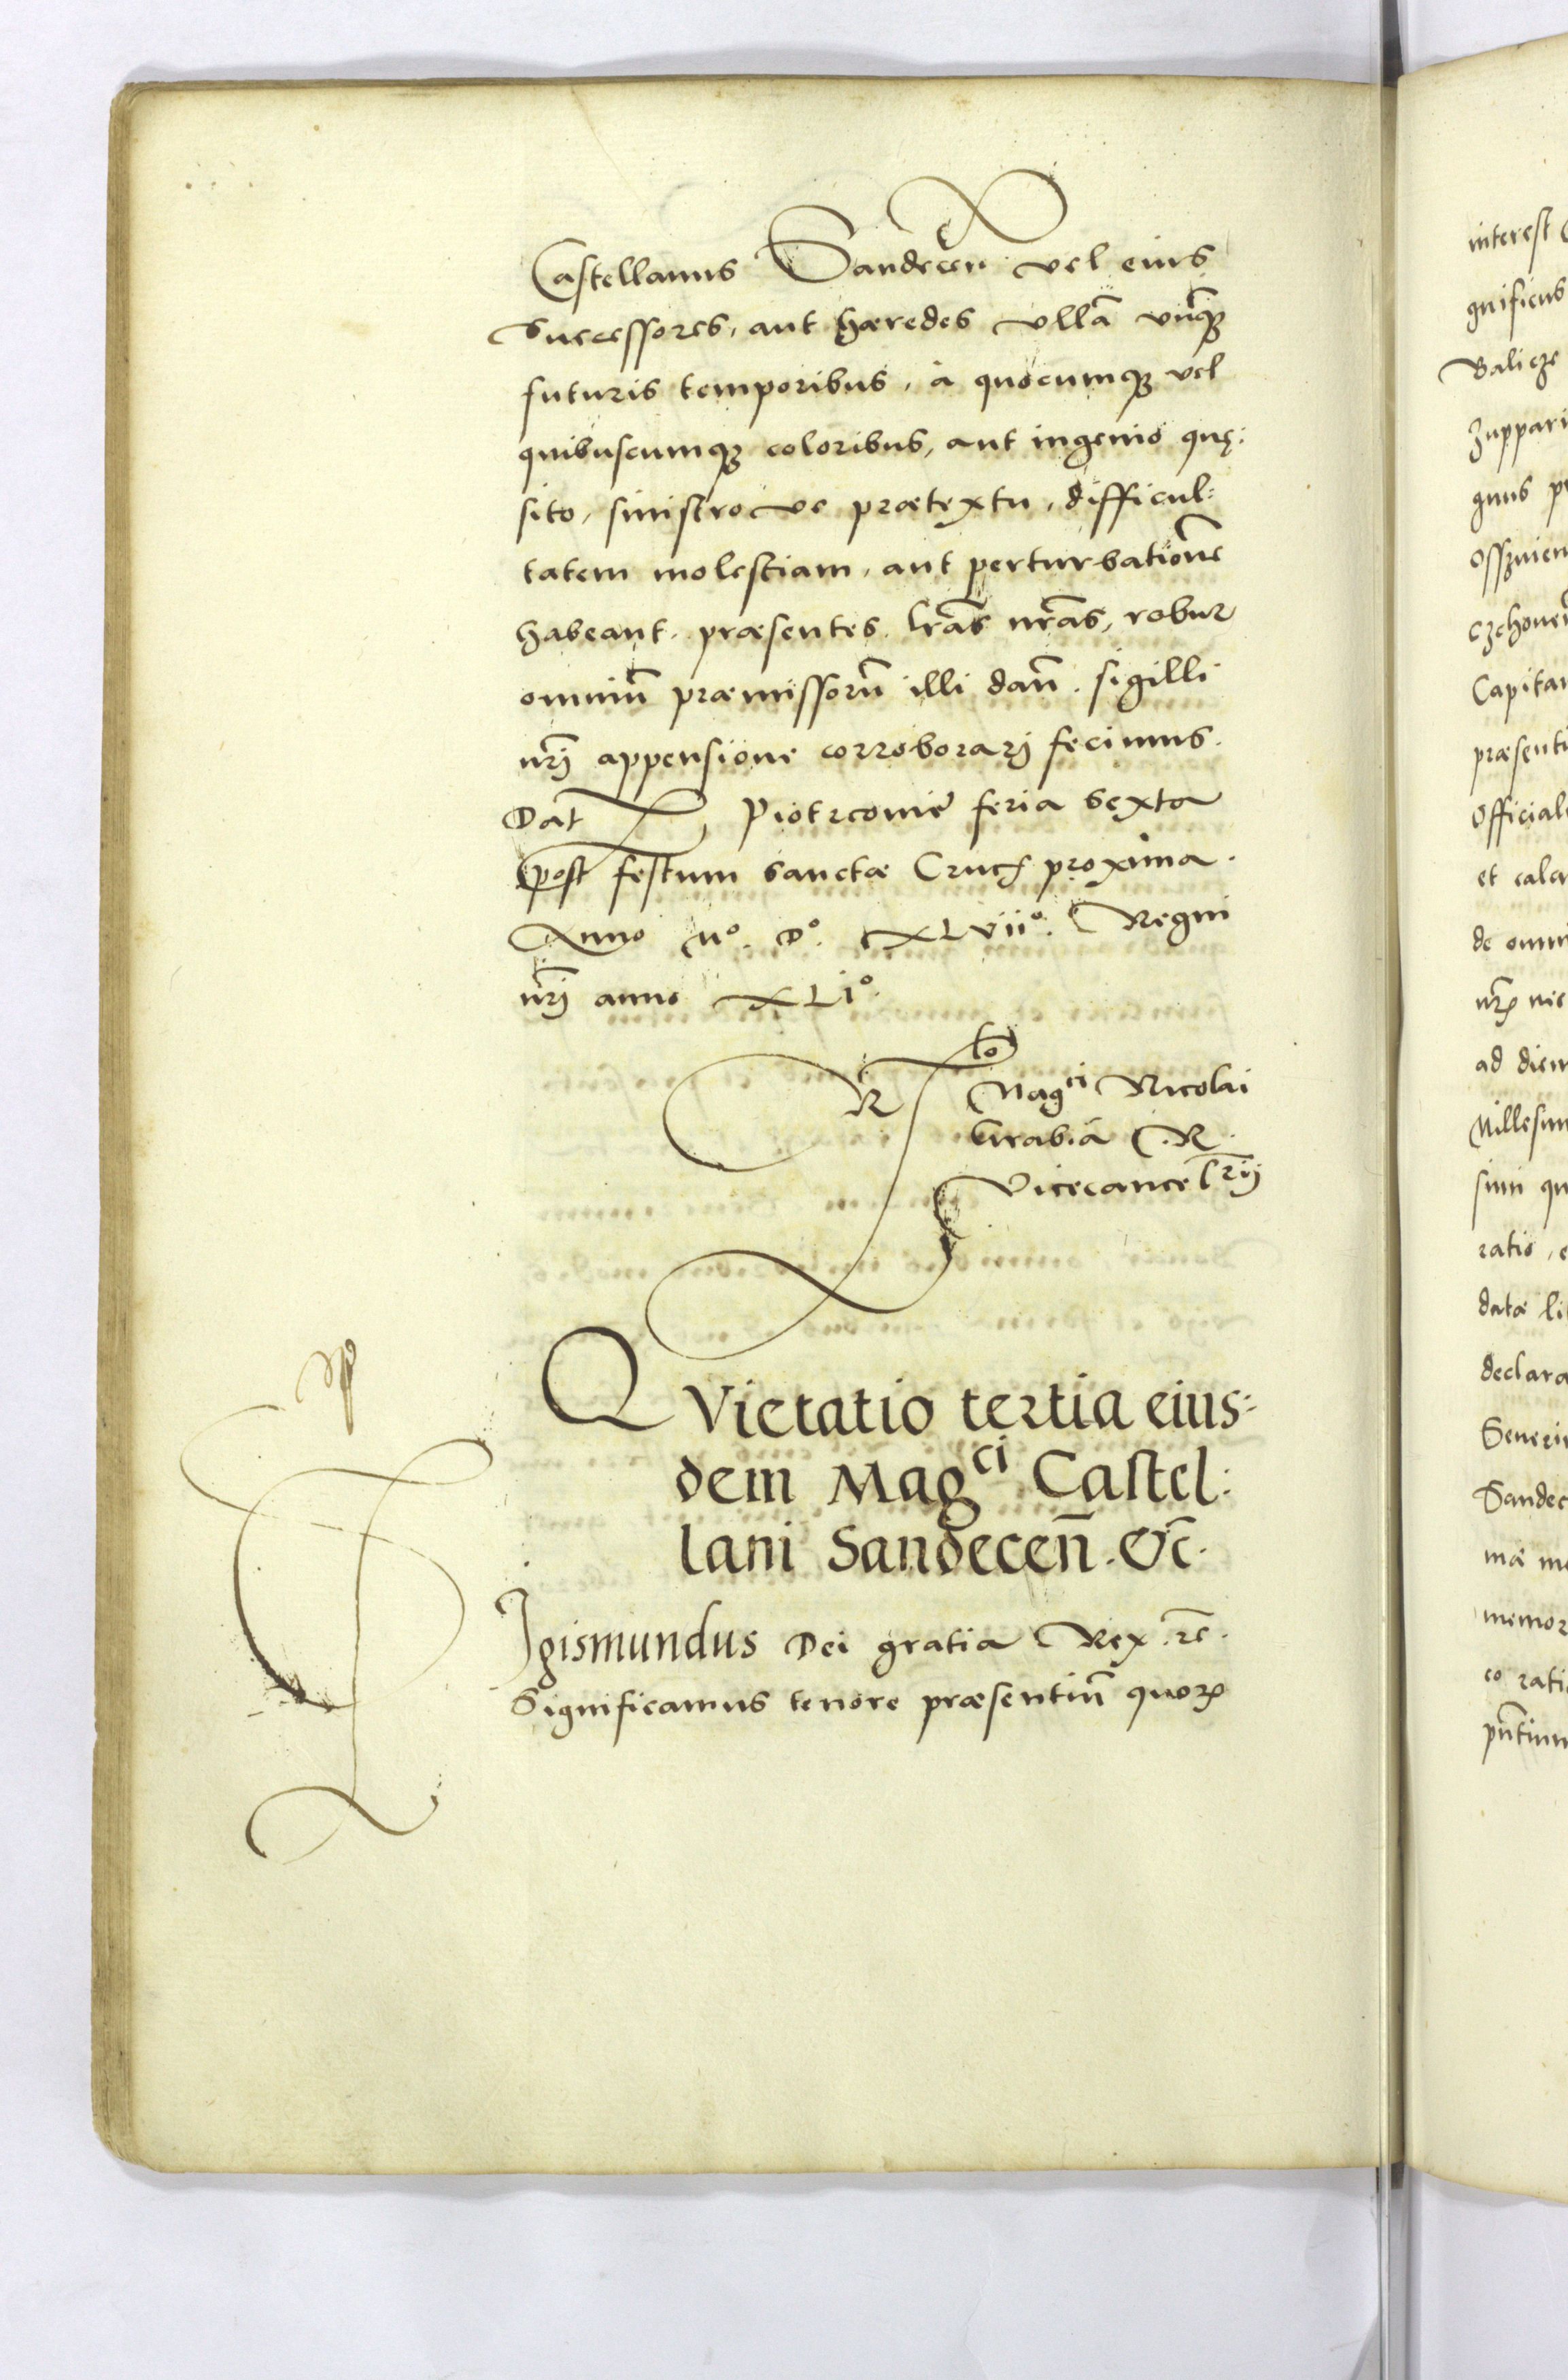 Castellanus Sandecen̄ vel eius
Successores, aut hæredes vllā vnq̄ꝫ
futuris temporibus, à quocumqꝫ vel
quibuscumqꝫ coloribus, aut ingenio quę:
sito, sinistro ve prætextu, difficul:
tatem molestiam, aut perturbationē
habeant. præsentes. l̄ras n̄ras, robur
omniū præmissorū illi dan̄. sigilli
n̄rj appensione corroborarj fecimus.
Dat̄ Piotrcouię feria sexta
post festum sanctæ Cruc̨ proxima.
Anno Mᵒ. Dᵒ. XLviiᵒ. Regni
n̄rj anno XLiᵒ.
Rᵗᵒ
Magᶜⁱ Nicolai
Grabia .R.
Vicecancel̄rij
QVietatio tertia eius:
dem Magᶜⁱ Castel:
lani Sandecen̄. &c̄.
Igismundus Dei gratia Rex .rc̄.
Significamus tenore præsentiū quorꝝ
interest
gnificus
Balicze
Zuppari
gnus
Osszwien
Czchouen̄
Capitan
præsenti
Official
et calcu
de omni
n̄rꝝ
ad diem
Millesim
simi qu
ratio,
datæ li
declara
Seueri
Sandec
mæ
memor
eo rati
pn̄tium